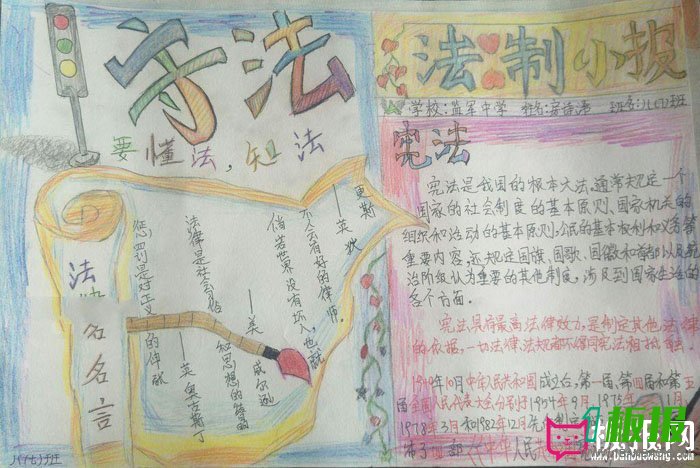 守法
要懂法，知法
倘若世界没有坏人,也就
不会有好的律师。
——英 狄更斯
法律是社会习俗和思想的结晶
——美 威尔逊
惩罚是对正义的伸张
——英 奥古斯丁
法
名名言
八(七)班
法制小报
学校:监军中学 姓名: 班名:八(7)班
宪法
宪法是我国的根本大法,通常规定一个
国家的社会制度的基本原则、国家机关的
组织和活动的基本原则,公民的基本权利和义务等
重要内容。还规定国旗、国歌、国徽和首都以及统
治阶级认为重要的其他制度,涉及到国家生活的
各个方面。
宪法具有最高法律效力,是制定其他法律
的依据,一切法律、法规都不得同宪法相抵触。
1949年10月中华人民共和国成立后,第一届、第四届和第五
届全国人民代表大会分别于1954年9月、1975年1月、
1978年3月和1982年12月
人民共
板报网
banbaowang.com